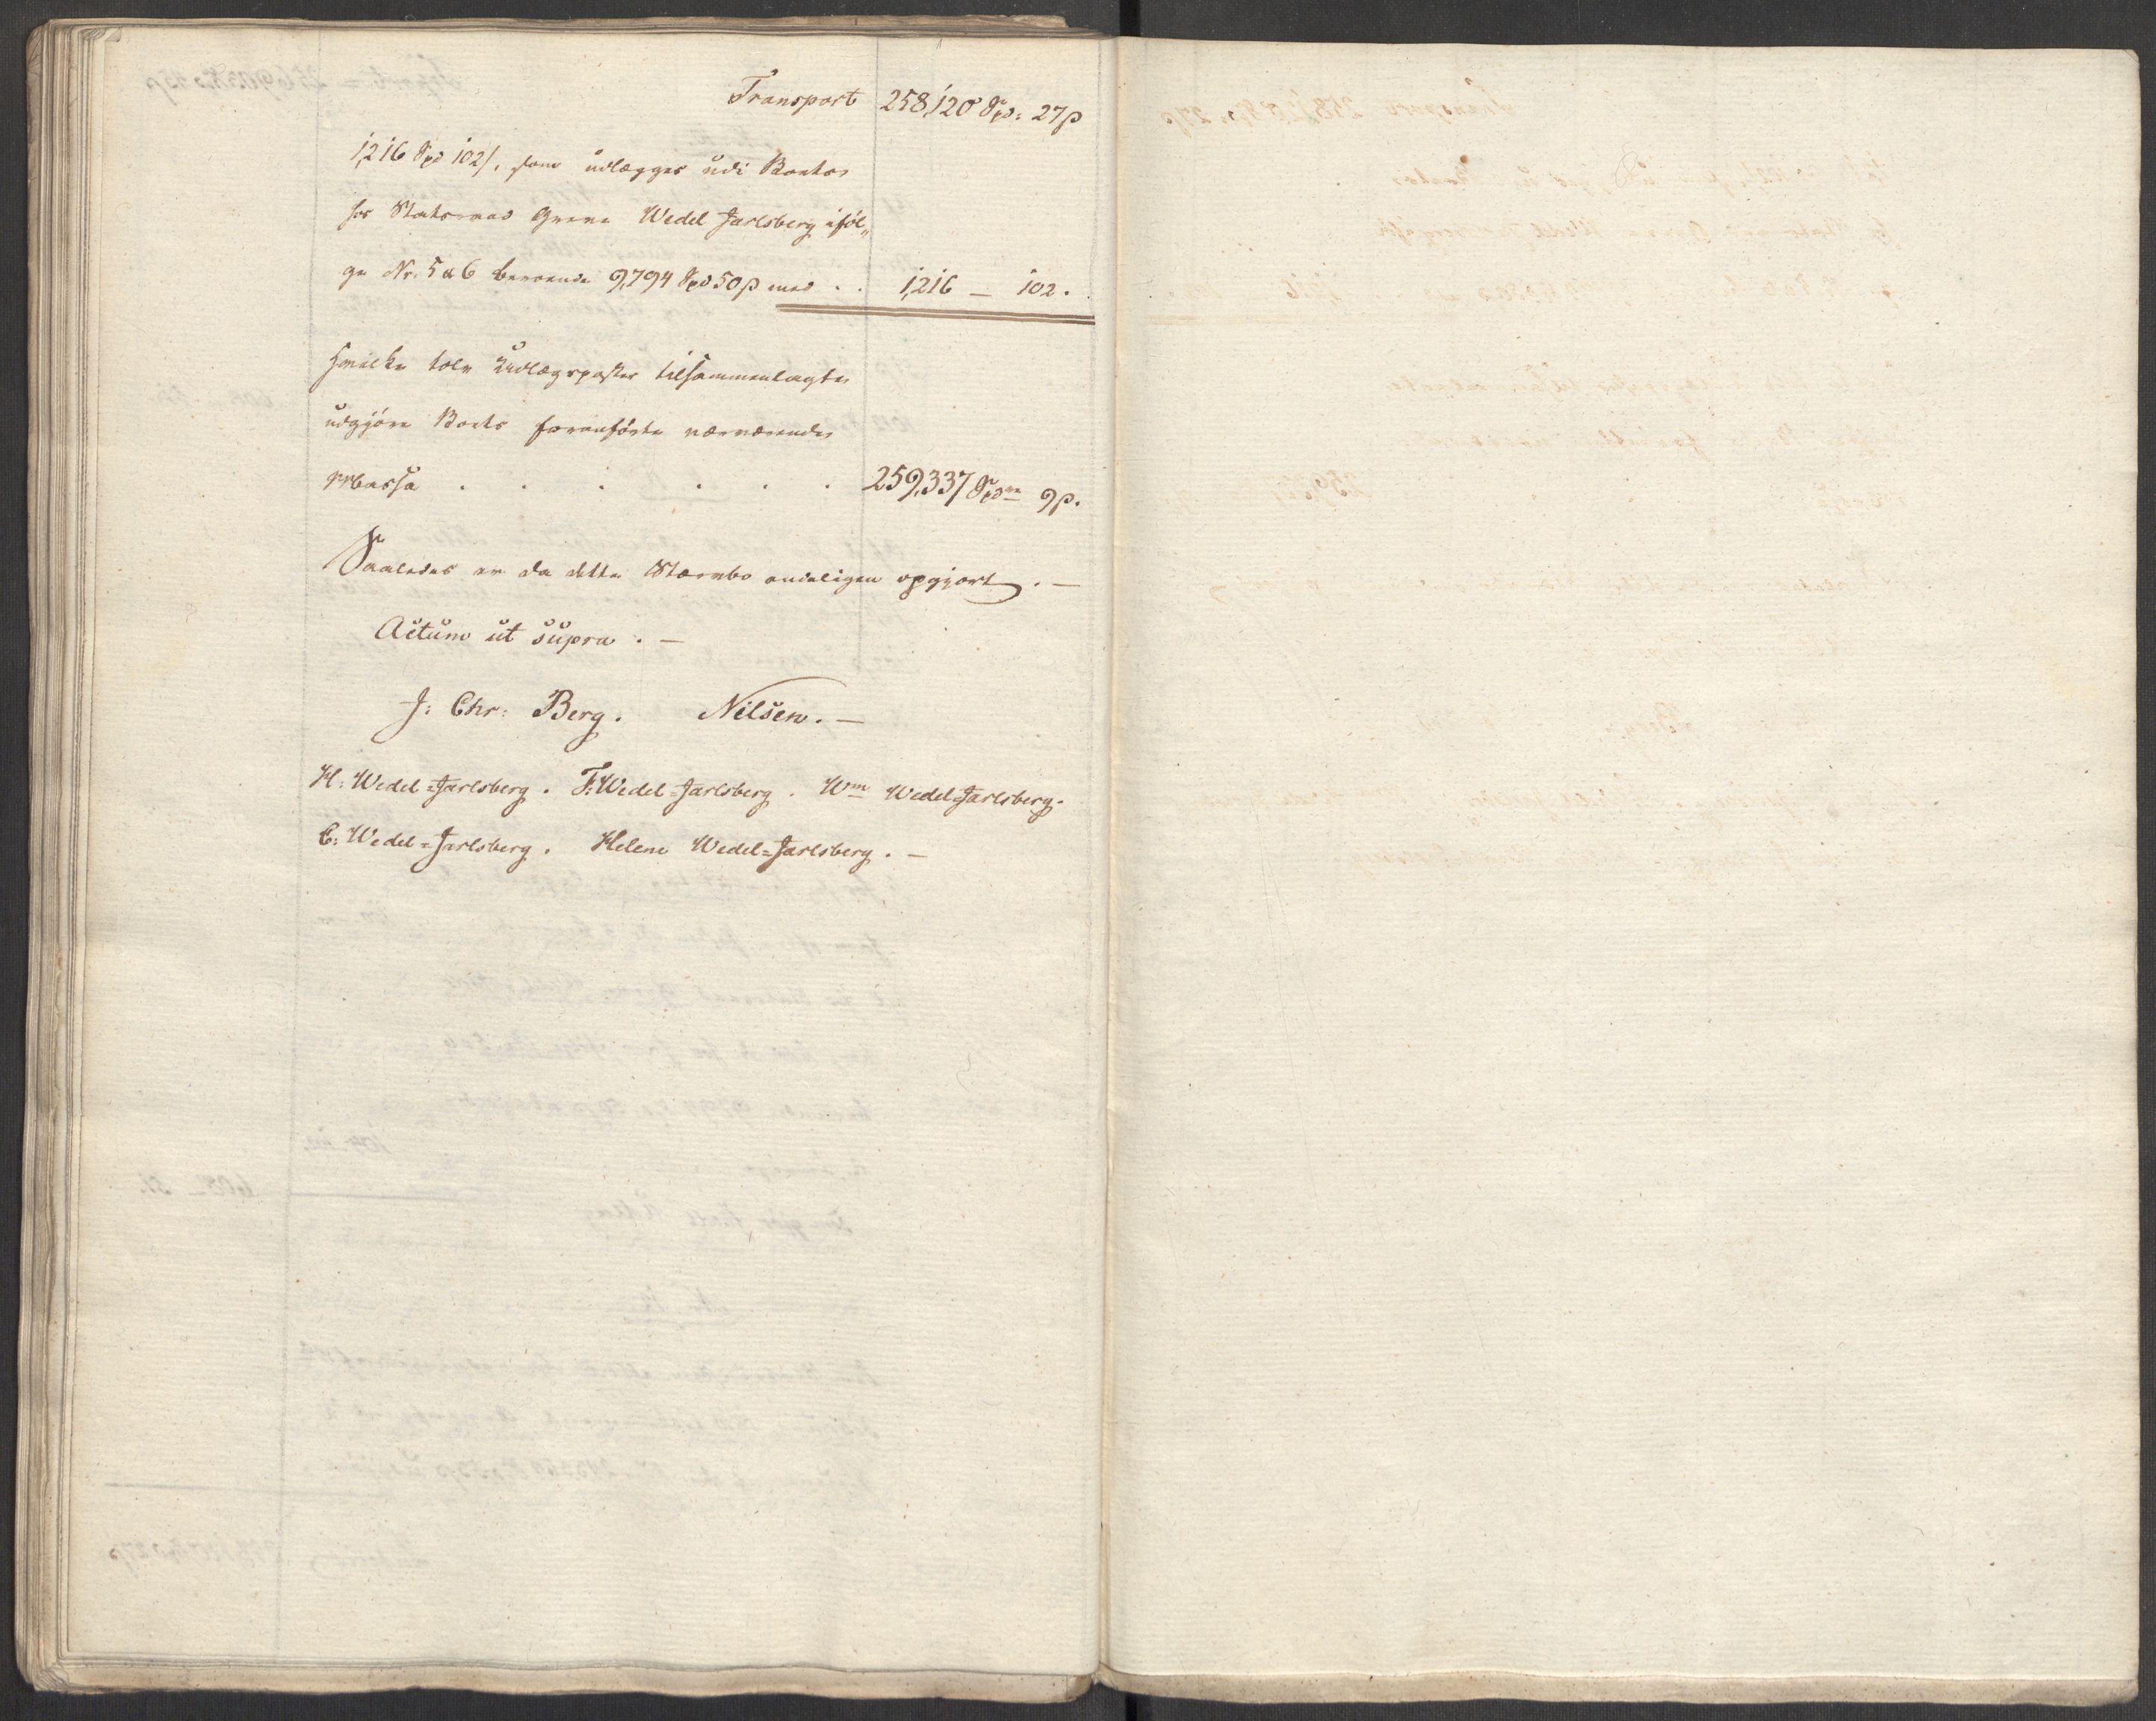 Transport 258,120 Spd: 27 ß
1,216 Spd 102 ß, som udlægges udi Boets
hos Statsraad Greve Wedel Jarlsberg iføl„
ge Nr. 5 a 6 beroende 9,794 Spd 50 ß med . . 1,216 – 102.
hvilke tolv Udlægsposter tilsammenlagte
udgjøre Boets foranførte værende
Massa . . . . . . 259,337 Spd 9 ß.
Saaledes er da dette Stervbo endeligen opgjort. –
Actum ut supra. –
J: Chr: Berg. Nilsen. –
H: Wedel=Jarlsberg. F: Wedel=Jarlsberg. Wm Wedel Jarlsberg.
C: Wedel=Jarlsberg. Helene Wedel=Jarlsberg. –